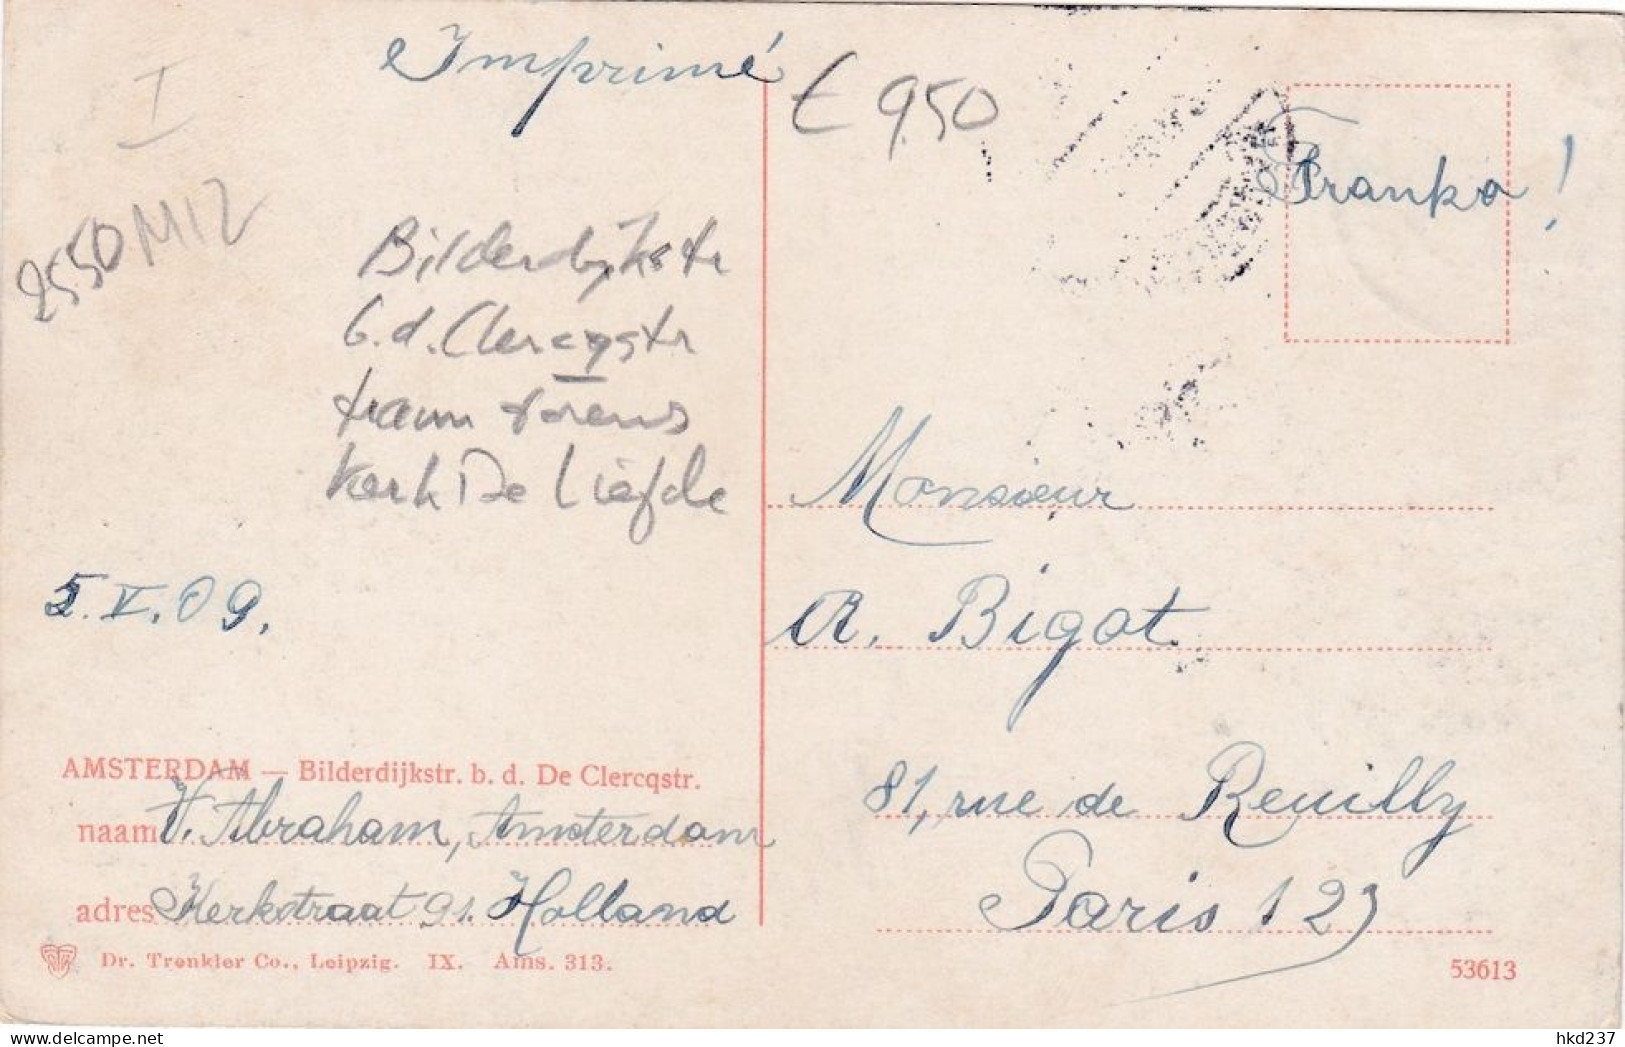 Imprimé
€ 9,50
I
Franko!
2550 M12
Bilderdijkstr
b.d. Clercqstr
tram torens
Kerk De Liefde
Monsieur
5.V.09.
A. Bigot
AMSTERDAM — Bilderdijkstr. b. d. De Clercqstr.
81, rue de Reuilly
naam V. Abraham, Amsterdam
adres Kerkstraat 91. Holland
Paris 12
Dr. Trenkler Co., Leipzig. IX. Ams. 313.
53613
hkd237